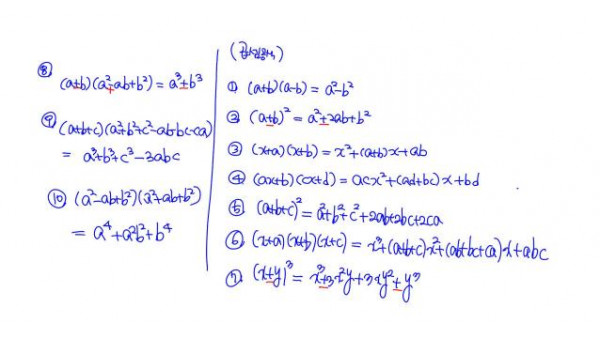 ⑧
(a±b)(a²∓ab+b²) = a³±b³
⑨
(a+b+c)(a²+b²+c²-ab-bc-ca)
= a³+b³+c³-3abc
⑩ (a²-ab+b²)(a²+ab+b²)
= a⁴+a²b²+b⁴
① (a+b)(a-b) = a²-b²
② (a±b)² = a²±2ab+b²
③ (x+a)(x+b) = x²+(a+b)x+ab
④ (ax+b)(cx+d) = acx²+(ad+bc)x+bd
⑤ (a+b+c)² = a²+b²+c²+2ab+2bc+2ca
⑥ (x+a)(x+b)(x+c) = x³+(a+b+c)x²+(ab+bc+ca)x+abc
⑦ (x±y)³ = x³±3x²y+3xy²±y³